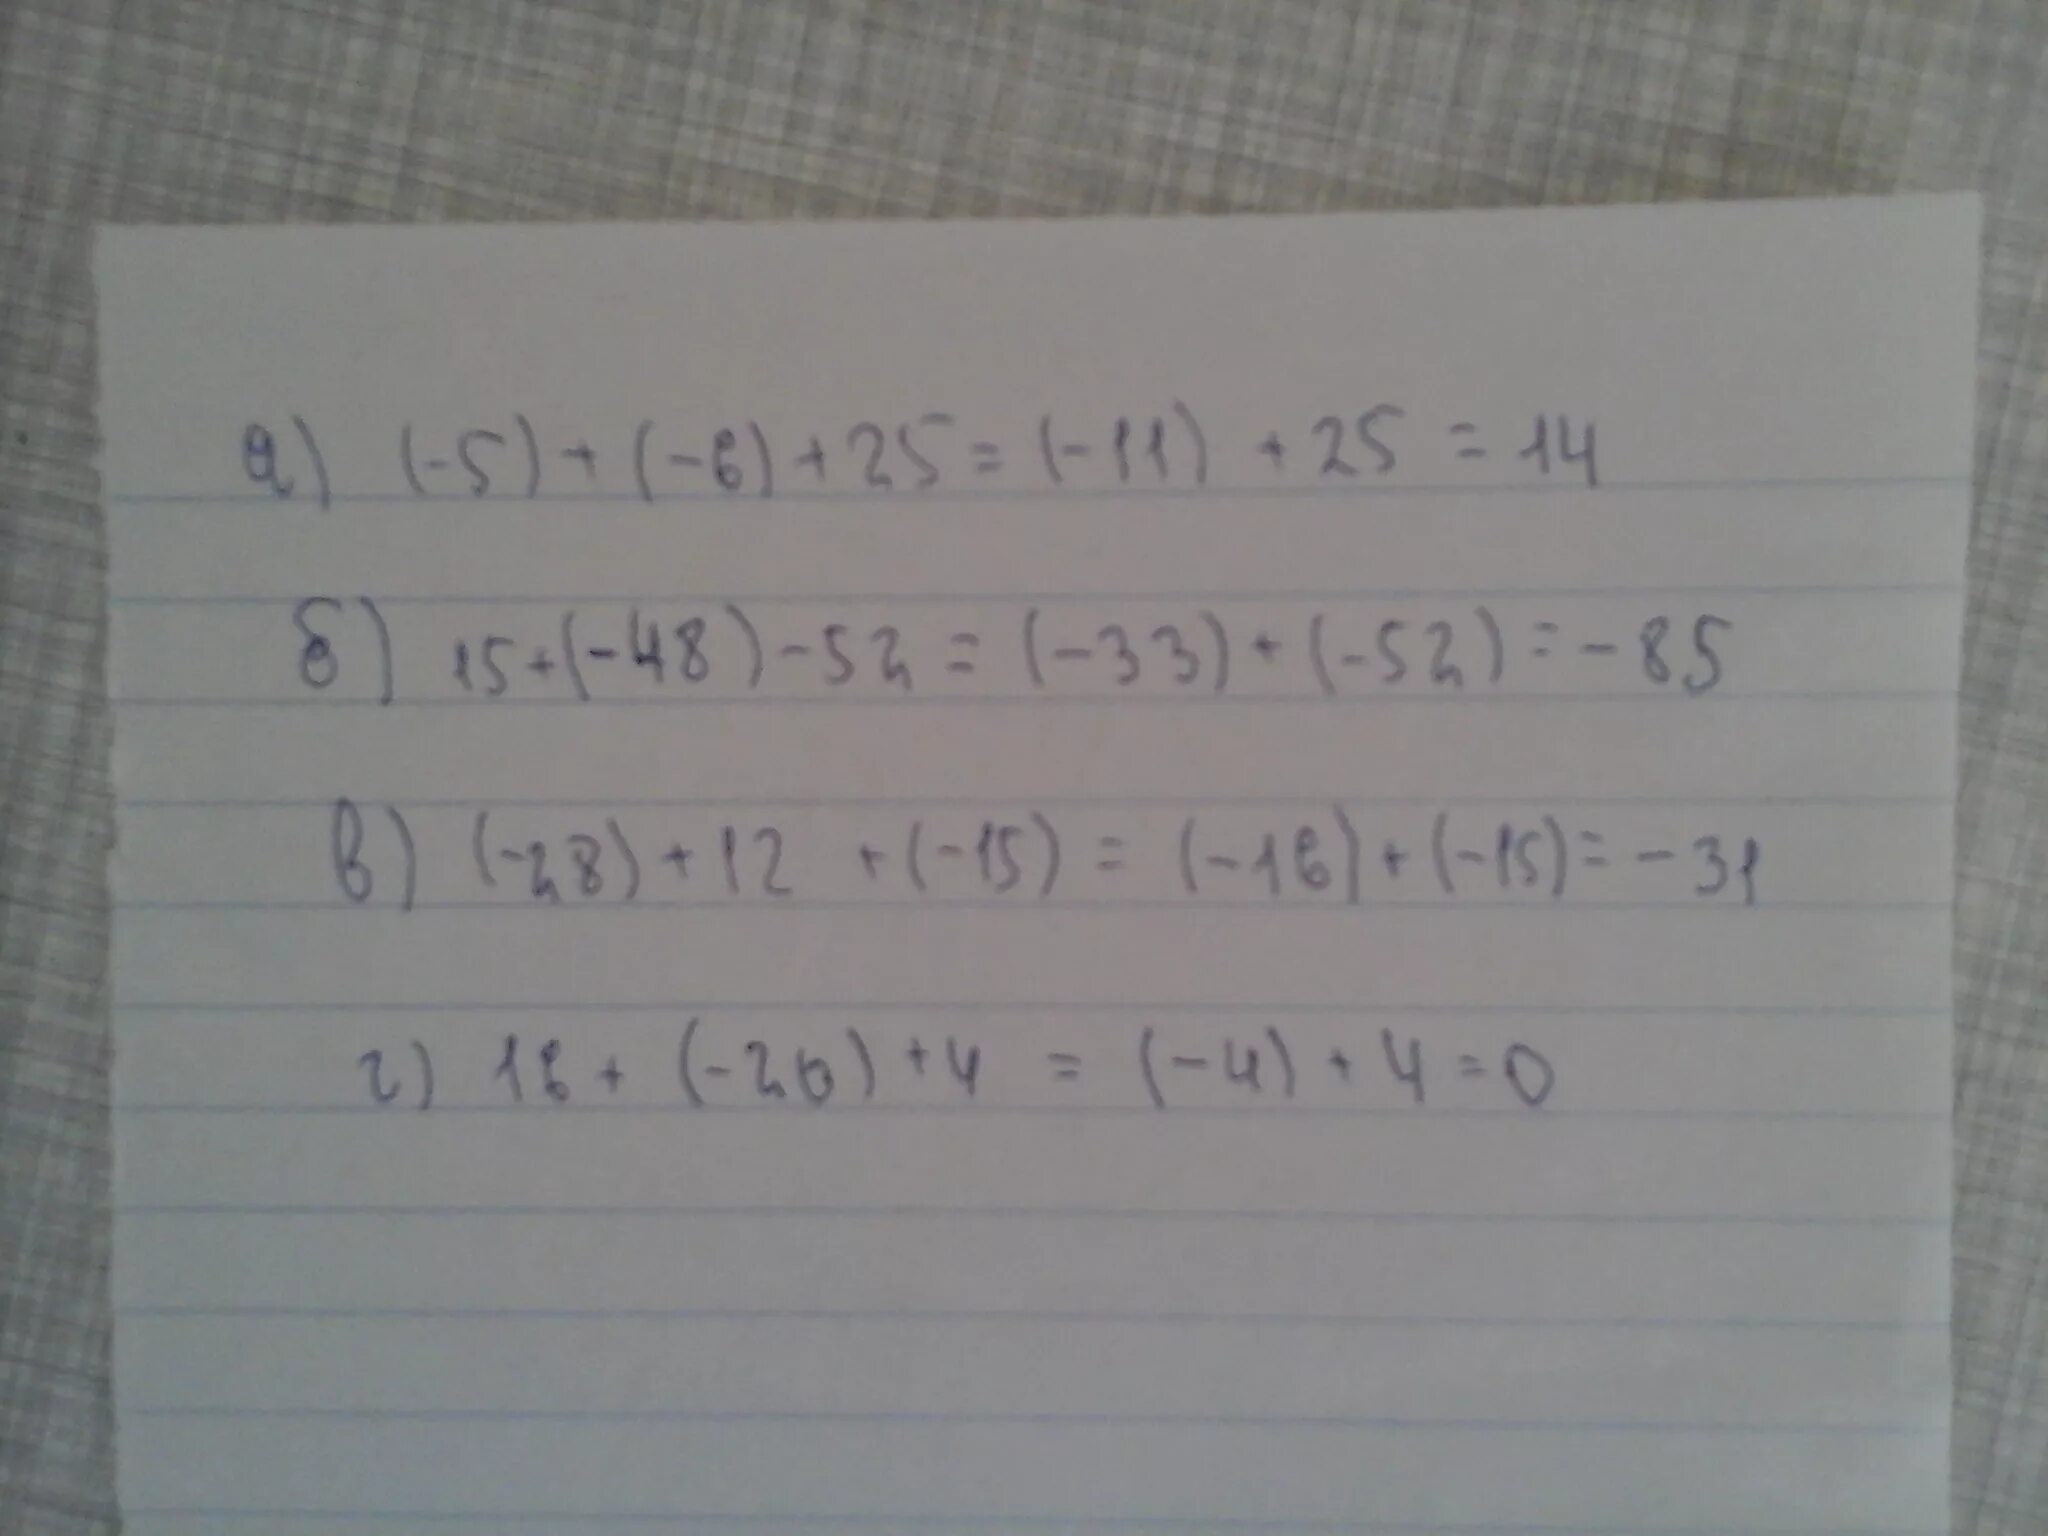 а) (-5)+(-6)+25=(-11)+25=14
б) 15+(-48)-52=(-33)+(-52)=-85
в) (-28)+12+(-15)=(-16)+(-15)=-31
г) 16+(-20)+4=(-4)+4=0